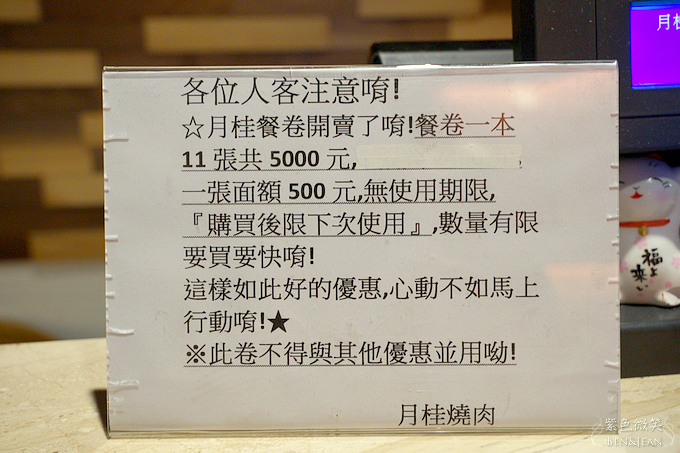 各位人客注意唷!
☆月桂餐卷開賣了唷!餐卷一本
11 張共 5000 元,
一張面額 500 元,無使用期限,
『購買後限下次使用』,數量有限
要買要快唷!
這樣如此好的優惠,心動不如馬上
行動唷!★
※此卷不得與其他優惠並用呦!
月桂燒肉
月桂
福よ
来い
紫色微笑
BEN&JEAN